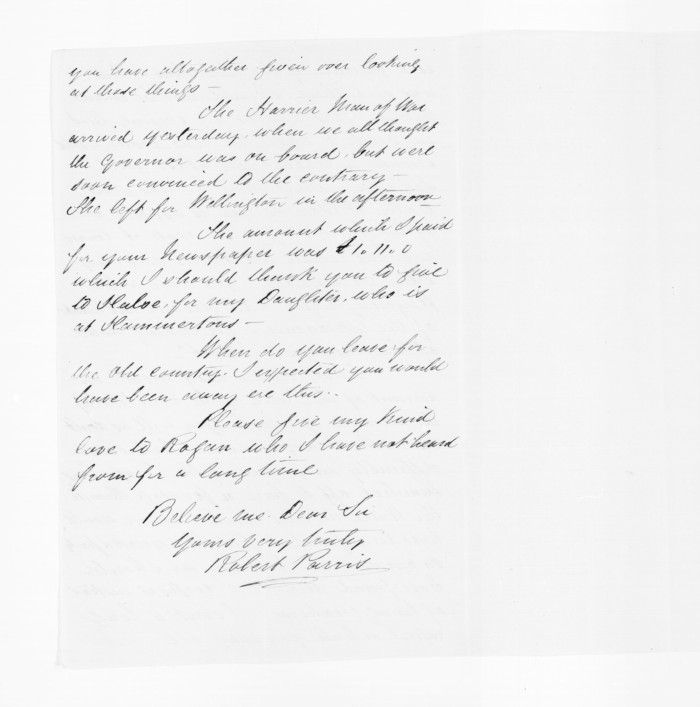 you have altogether given over looking
at those things —
The Harrier Man of War
arrived yesterday, when we all thought
the Governor was on board, but were
soon convinced to the contrary —
She left for Wellington in the afternoon
The amount which I paid
for your Newspaper was £1.11.0
which I should thank you to give
to Halse, for my Daughter, who is
at Hammertons —
When do you leave for
the Old country. I expected you would
have been away ere this..
Please give my kind
love to Rogan who I have not heard
from for a long time
Believe me Dear Sir
Yours very truly
Robert Parris